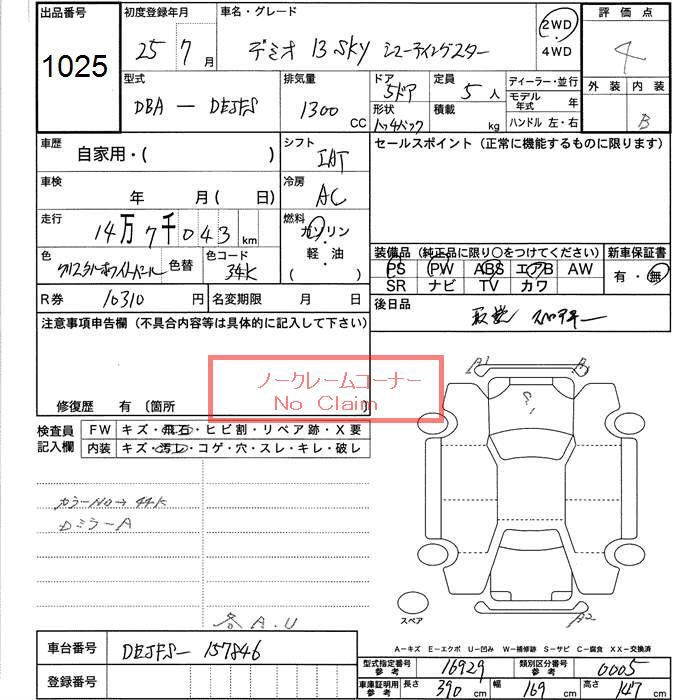 出品番号 初度登録年月 車名・グレード 2WD 評価点
1025 25 7 月 デミオ 13 SKY シューティングスター ・ 4WD 4
型式 排気量 ドア 5ドア 定員 5 人 ディーラー・並行 外装 内装
DBA — DEJFS 1300 CC 形状 積載 kg モデル年式 年 B
ハッチバック ハンドル 左・右
車歴 自家用・( ) シフト IAT セールスポイント(正常に機能するものに限ります)
車検 年 月( 日) 冷房 AC
走行 14万7千043 km 燃料 ガソリン・軽・油 ( )
色 クリスタルホワイトパール 色替 色コード 34K
装備品(純正品に限り○をつけてください) 新車保証書
PS PW ABS エアB AW 有・無
SR ナビ TV カワ
R券 10310 円 名変期限 月 日 後日品 取説
注意事項申告欄(不具合内容等は具体的に記入して下さい)
ノークレームコーナー
No Claim
修復歴 有〔箇所
検査員記入欄 FW キズ・飛石・ヒビ割・リペア跡・X要
内装 キズ・汚れ・コゲ・穴・スレ・キレ・破レ
A1 A
カラーNO→44K
DミラーA
各A.U
スペア
A2
A-キズ E-エクボ U-凹み W-補修跡 S-サビ C-腐食 XX-交換済
車台番号 DEJFS-157846
型式指定番号 参考 16929 類別区分番号 参考 0005
登録番号 車庫証明用 参考 長さ 390 cm 幅 169 cm 高さ 147 cm